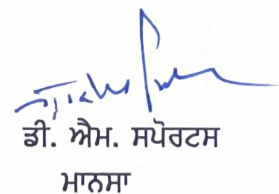 ਡੀ. ਐਮ. ਸਪੋਰਟਸ
ਮਾਨਸਾ